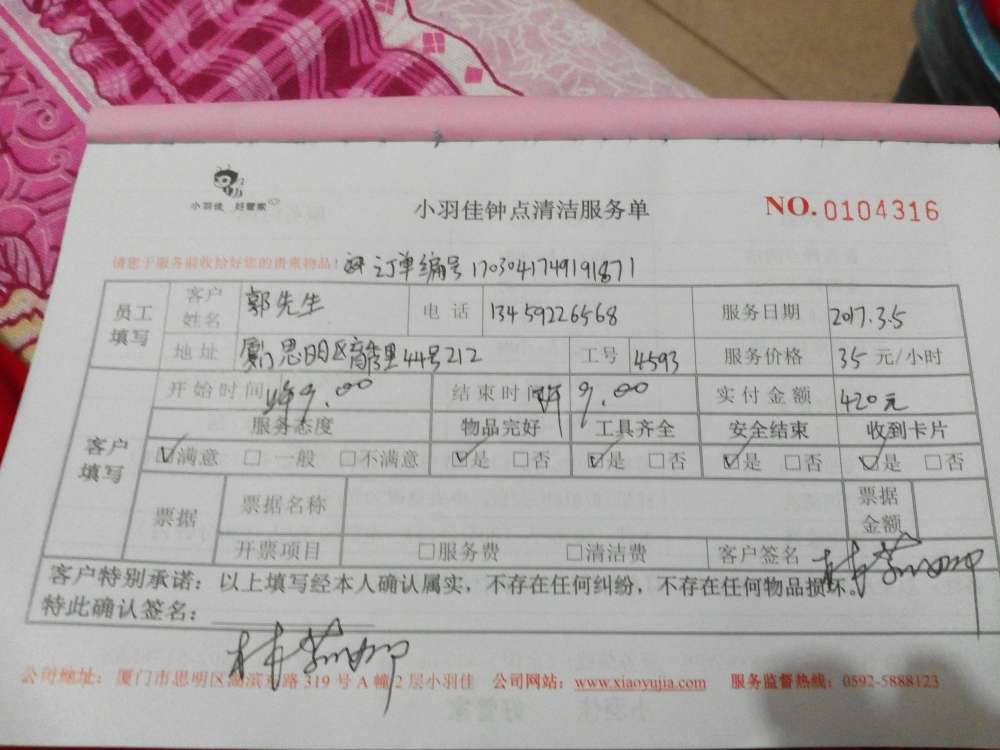 小羽佳 好管家
小羽佳钟点清洁服务单
NO. 0104316
请您于服务前收拾好您的贵重物品! 订单编号 1703041749191871
员工填写 客户姓名 郭先生 电话 13459226568 服务日期 2017.3.5
地址 思明区 里44号212 工号 4593 服务价格 35元/小时
客户填写 开始时间 9.00 结束时间 9.00 实付金额 420元
服务态度 物品完好 工具齐全 安全结束 收到卡片
☑满意 □一般 □不满意 ☑是 □否 ☑是 □否 ☑是 □否 ☑是 □否
票据 票据名称 票据金额
开票项目 □服务费 □清洁费 客户签名
客户特别承诺：以上填写经本人确认属实，不存在任何纠纷，不存在任何物品损坏。
特此确认签名：
公司地址：厦门市思明区湖滨东路319号A幢2层小羽佳 公司网站：www.xiaoyujia.com 服务监督热线：0592-5888123